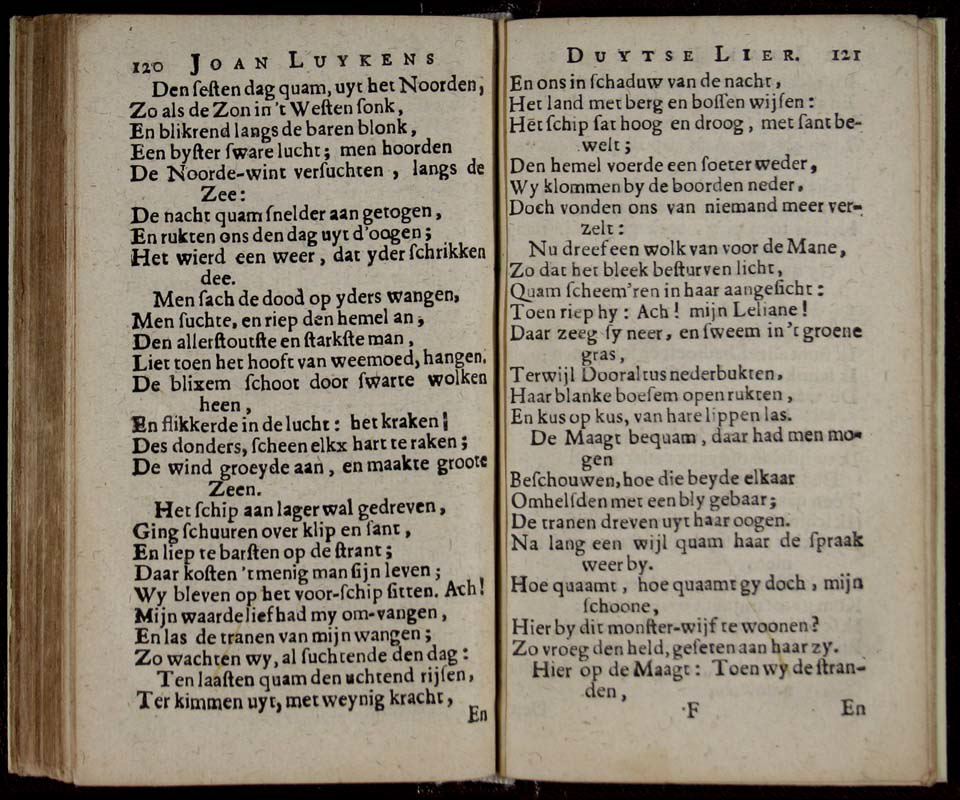 120 JOAN LUYKENS
Den ſeſten dag quam, uyt het Noorden,
Zo als de Zon in 't Weſten ſonk,
En blikrend langs de baren blonk,
Een byſter ſware lucht; men hoorden
De Noorde-wint verſuchten, langs de
Zee:
De nacht quam ſnelder aan getogen,
En rukten ons den dag uyt d'oogen;
Het wierd een weer, dat yder ſchrikken
dee.
Men ſach de dood op yders wangen,
Men ſuchte, en riep den hemel an,
Den allerſtoutſte en ſtarkſte man,
Liet toen het hooft van weemoed, hangen.
De blixem ſchoot door ſwarte wolken
heen,
En flikkerde in de lucht: het kraken
Des donders, ſcheen elkx hart te raken;
De wind groeyde aan, en maakte groote
Zeen.
Het ſchip aan lager wal gedreven,
Ging ſchuuren over klip en ſant,
En liep te barſten op de ſtrant;
Daar koſten 't menig man ſijn leven;
Wy bleven op het voor-ſchip ſitten. Ach!
Mijn waarde lief had my om-vangen,
En las de tranen van mijn wangen;
Zo wachten wy, al ſuchtende den dag:
Ten laaſten quam den uchtend rijſen,
Ter kimmen uyt, met weynig kracht,
En
DUYTSE LIER. 121
En ons in ſchaduw van de nacht,
Het land met berg en boſſen wijſen:
Hēt ſchip ſat hoog en droog, met ſant be-
welt;
Den hemel voerde een ſoeter weder,
Wy klommen by de boorden neder,
Doch vonden ons van niemand meer ver-
zelt:
Nu dreef een wolk van voor de Mane,
Zo dat het bleek beſturven licht,
Quam ſcheem'ren in haar aangeſicht:
Toen riep hy: Ach! mijn Leliane!
Daar zeeg ſy neer, en ſweem in 't groene
gras,
Terwijl Dooraltus nederbukten,
Haar blanke boeſem open rukten,
En kus op kus, van hare lippen las.
De Maagt bequam, daar had men mo-
gen
Beſchouwen, hoe die beyde elkaar
Omhelſden met een bly gebaar;
De tranen dreven uyt haar oogen.
Na lang een wijl quam haar de ſpraak
weer by.
Hoe quaamt, hoe quaamt gy doch, mijn
ſchoone,
Hier by dit monſter-wijf te woonen?
Zo vroeg den held, geſeten aan haar zy.
Hier op de Maagt: Toen wy de ſtran-
den,
F En